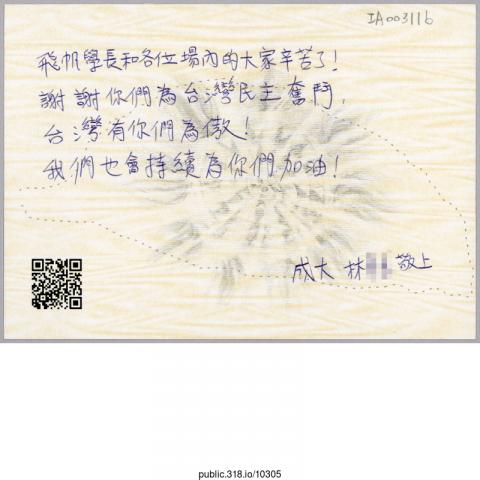 IA00311b
飛帆學長和各位場內的大家辛苦了!
謝謝你們為台灣民主奮鬥,
台灣有你們為傲!
我們也會持續為你們加油!
成大 林 敬上
public.318.io/10305